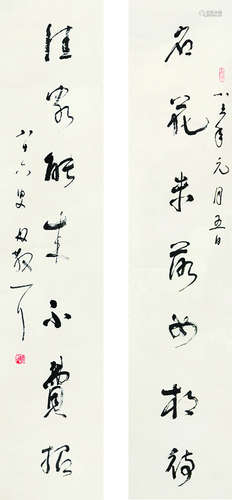 名花未落如相待
八三年元月五日
佳客能来不費招
八十六叟林散